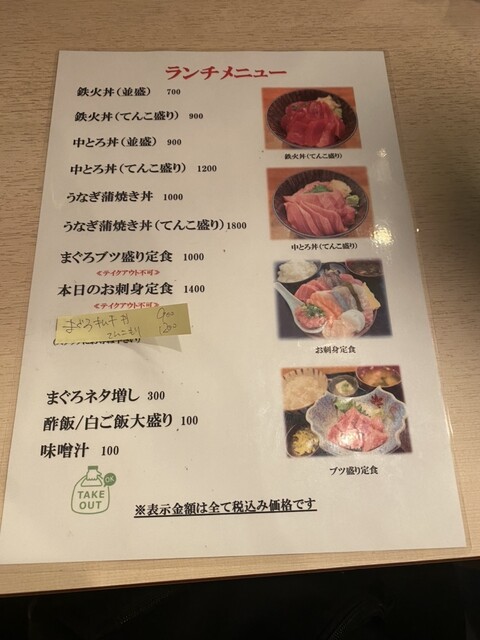 ランチメニュー
鉄火丼(並盛) 700
鉄火丼(てんこ盛り) 900
中とろ丼(並盛) 900
中とろ丼(てんこ盛り) 1200
うなぎ蒲焼き丼 1000
うなぎ蒲焼き丼(てんこ盛り) 1800
まぐろブツ盛り定食 1000
≪テイクアウト不可≫
本日のお刺身定食 1400
≪テイクアウト不可≫
まぐろキムチ丼 900
てんこもり 1200
まぐろネタ増し 300
酢飯/白ご飯大盛り 100
味噌汁 100
OK
TAKE
OUT
※表示金額は全て税込み価格です
鉄火丼(てんこ盛り)
中とろ丼(てんこ盛り)
お刺身定食
ブツ盛り定食